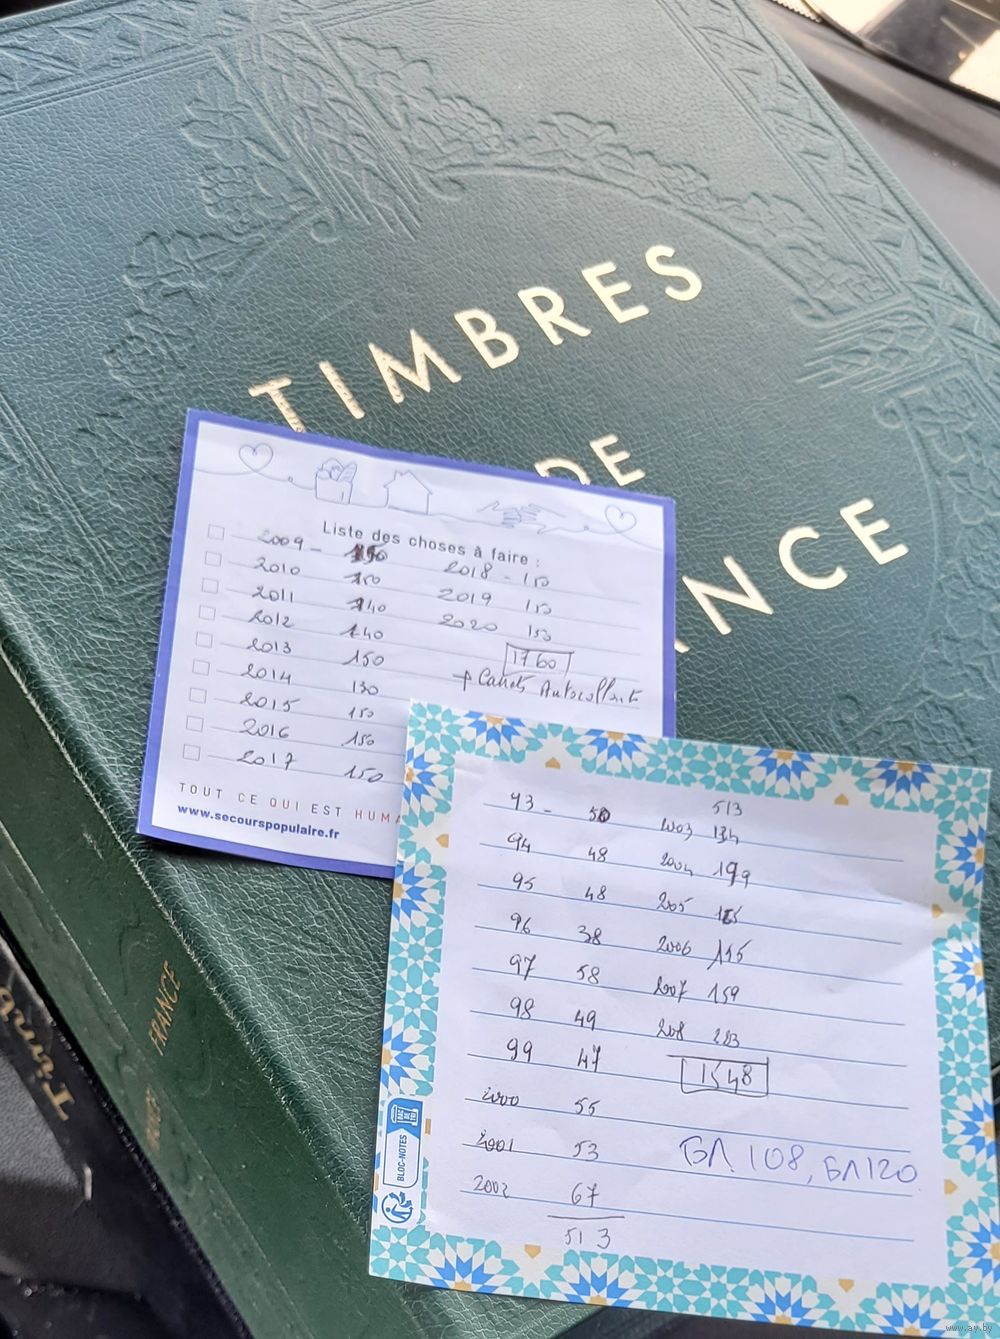 TIMBRES
DE
ANCE
Liste des choses à faire :
2009 - 150
2010 150
2011 140
2012 140
2013 150
2014 130
2015 150
2016 150
2017 150
2018 - 150
2019 150
2020 150
1760
+ Carnets Autocollants
TOUT CE QUI EST HUMA
www.secourspopulaire.fr
93 - 50
94 48
95 48
96 38
97 58
98 49
99 47
2000 55
2001 53
2002 67
513
513
2003 134
2004 199
2005
2006 155
2007 159
208 223
1548
БЛ 108, БЛ 120
BLOC-NOTES
FRANCE
www.ay.by